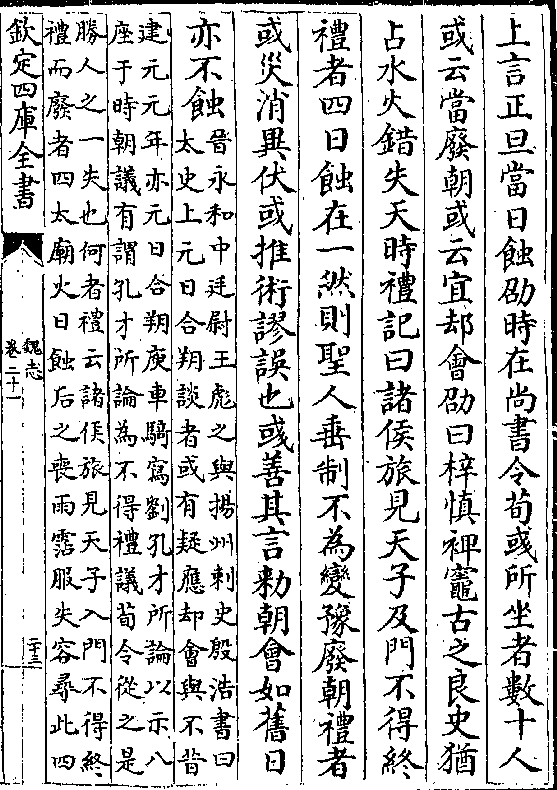 上言正旦當日蝕劭時在尚書令荀彧所坐者數十人
或云當廢朝或云宜却會劭曰梓慎禆竈古之良史猶
占水火錯失天時禮記曰諸侯旅見天子及門不得終
禮者四日蝕在一然則聖人垂制不為變豫廢朝禮者
或災消異伏或推術謬誤也彧善其言勑朝會如舊日
亦不蝕
晉永和中廷尉王彪之與揚州刺史殷浩書曰
太史上元日合朔談者或有疑應却會與不昔
建元元年亦元日合朔庾車騎寫劉孔才所論以示八
座于時朝議有謂孔才所論為不得禮議荀令從之是
勝人之一失也何者禮云諸侯旅見天子入門不得終
禮而廢者四太廟火日蝕后之喪雨霑服失容尋此四
欽定四庫全書
魏志
卷二十一
二十三